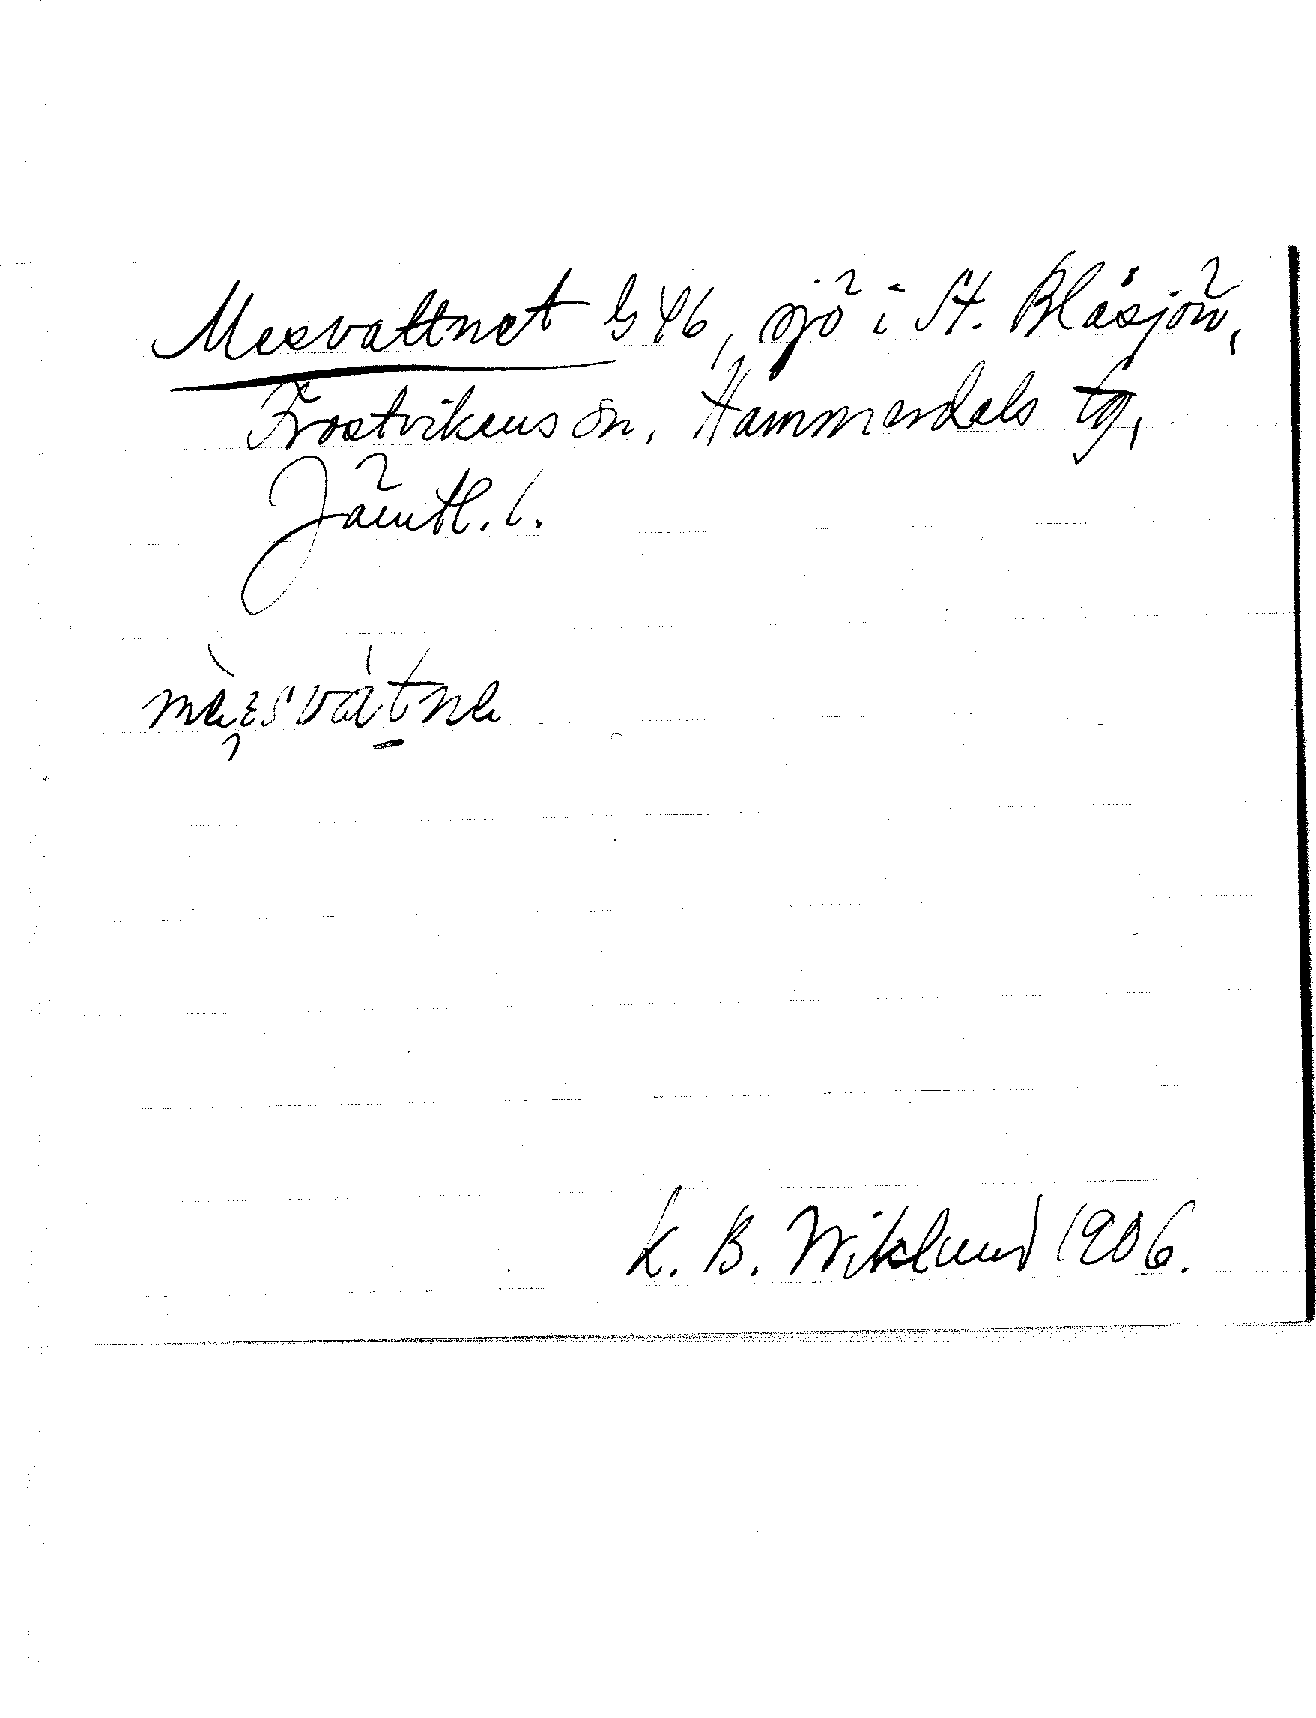 Mesvattnet G 46, sjö i St. Blåsjön,
Frostvikens sn, Hammerdals tg,
Jämtl. l.
K. B. Wiklund 1906.